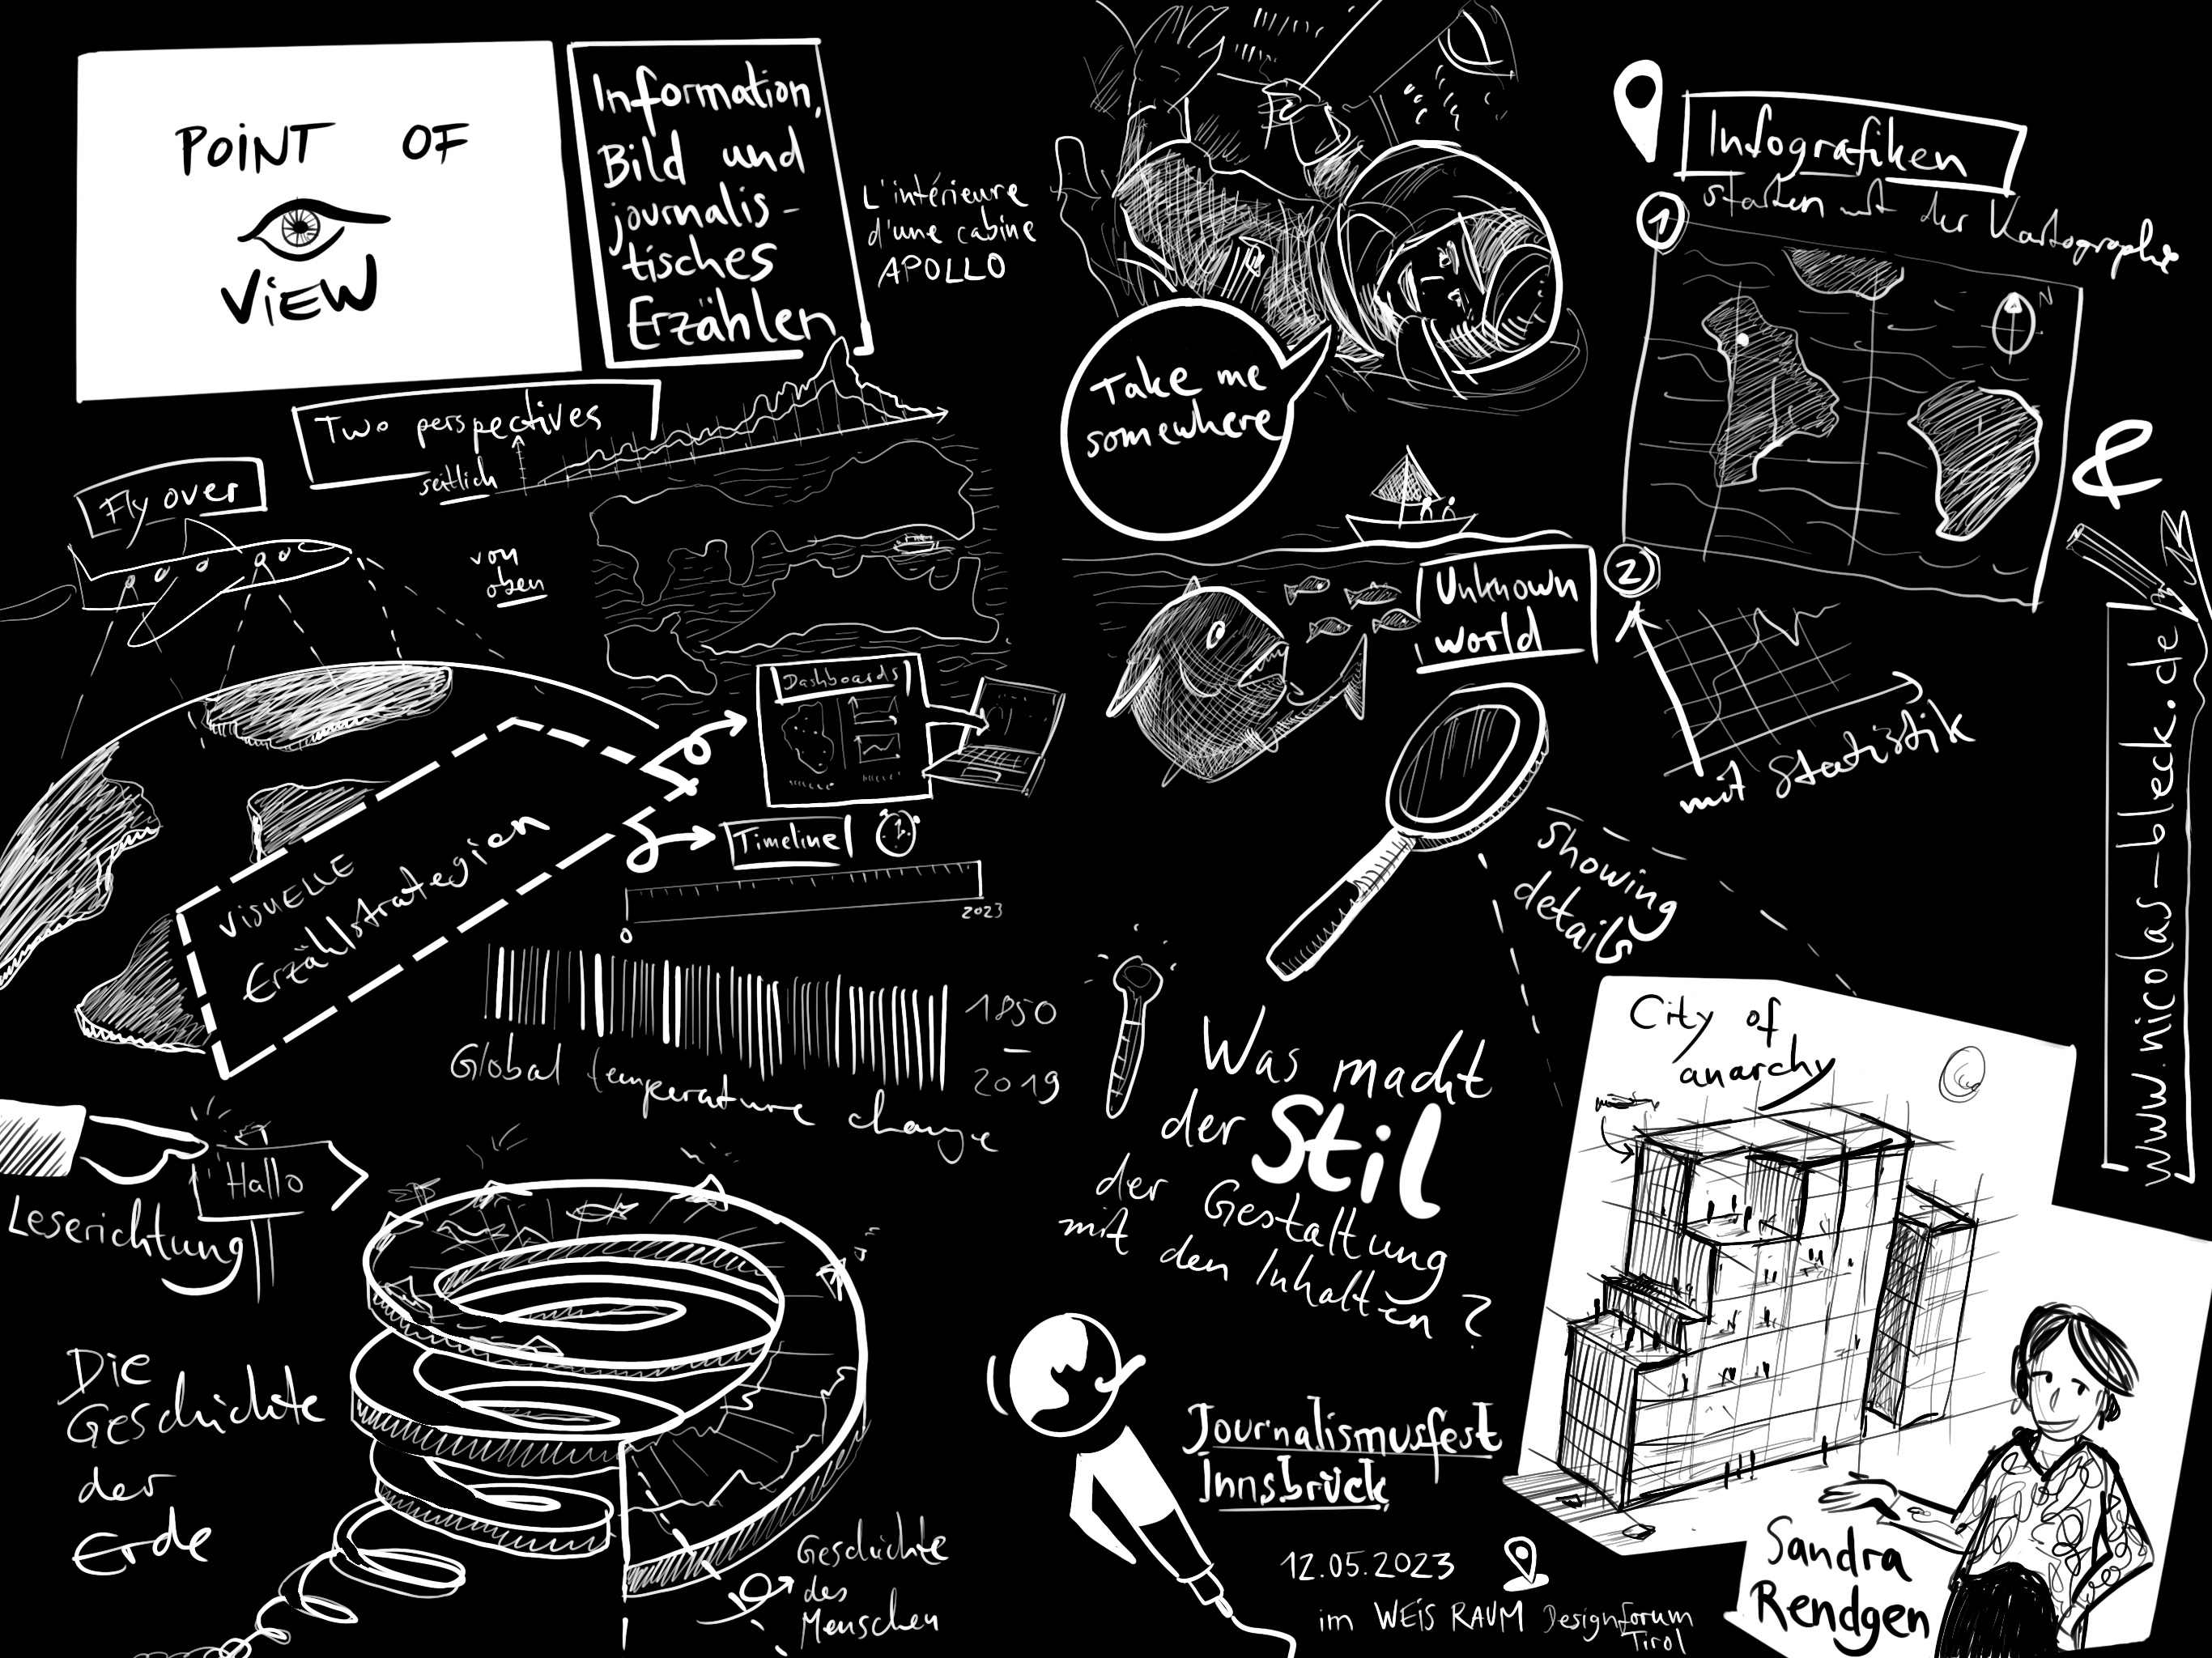 POINT OF
VIEW
Information,
Bild und
journalis-
tisches
Erzählen
L'intérieure
d'une cabine
APOLLO
Take me
somewhere
Infografiken
1
starten mit der Kartographie
N
&
2
mit Statistik
Two perspectives
seitlich
von
oben
Fly over
Unknown
world
Dashboards
Timeline
0
2023
VISUELLE
Erzählstrategien
Showing
details
www.nicolas-bleck.de
Global temperature change
1850
–
2019
Hallo
Leserichtung
Was macht
der Stil
der Gestaltung
mit den Inhalten?
City of
anarchy
Die
Geschichte
der
Erde
Geschichte
des
Menschen
Journalismusfest
Innsbruck
12.05.2023
im WEIS RAUM Designforum
Tirol
Sandra
Rendgen